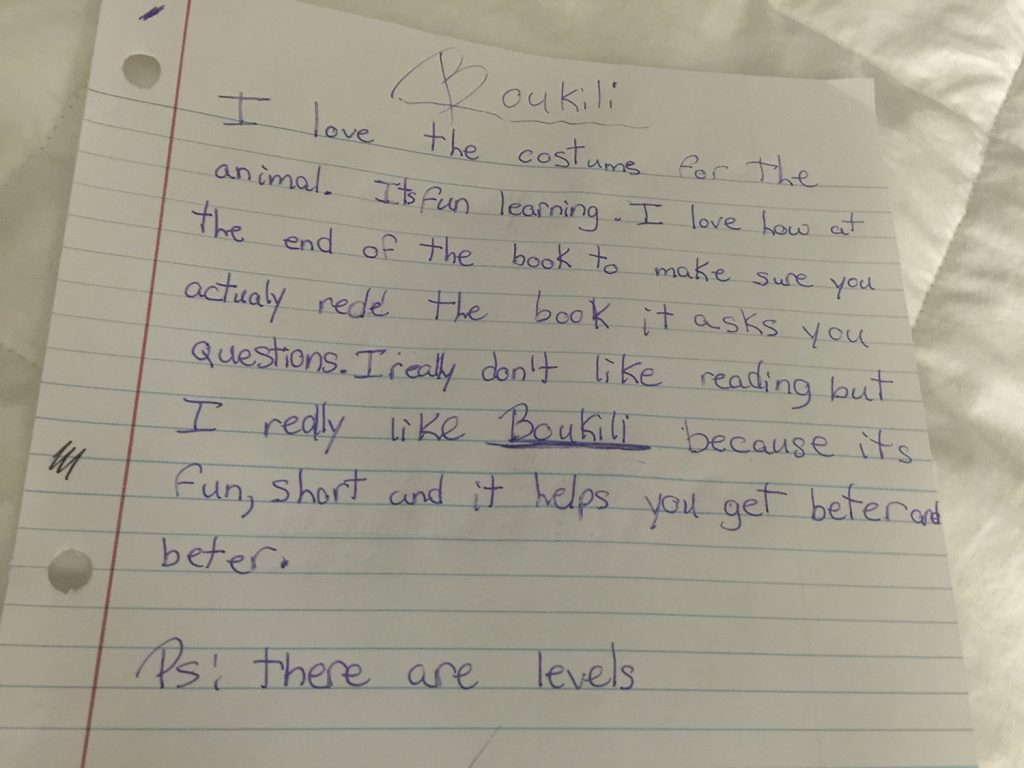 Boukili
I love the costums for the
animal. Its fun learning. I love how at
the end of the book to make sure you
actualy rede the book it asks you
questions. I really don't like reading but
I really like Boukili because its
fun, short and it helps you get beter and
beter.
Ps: there are levels